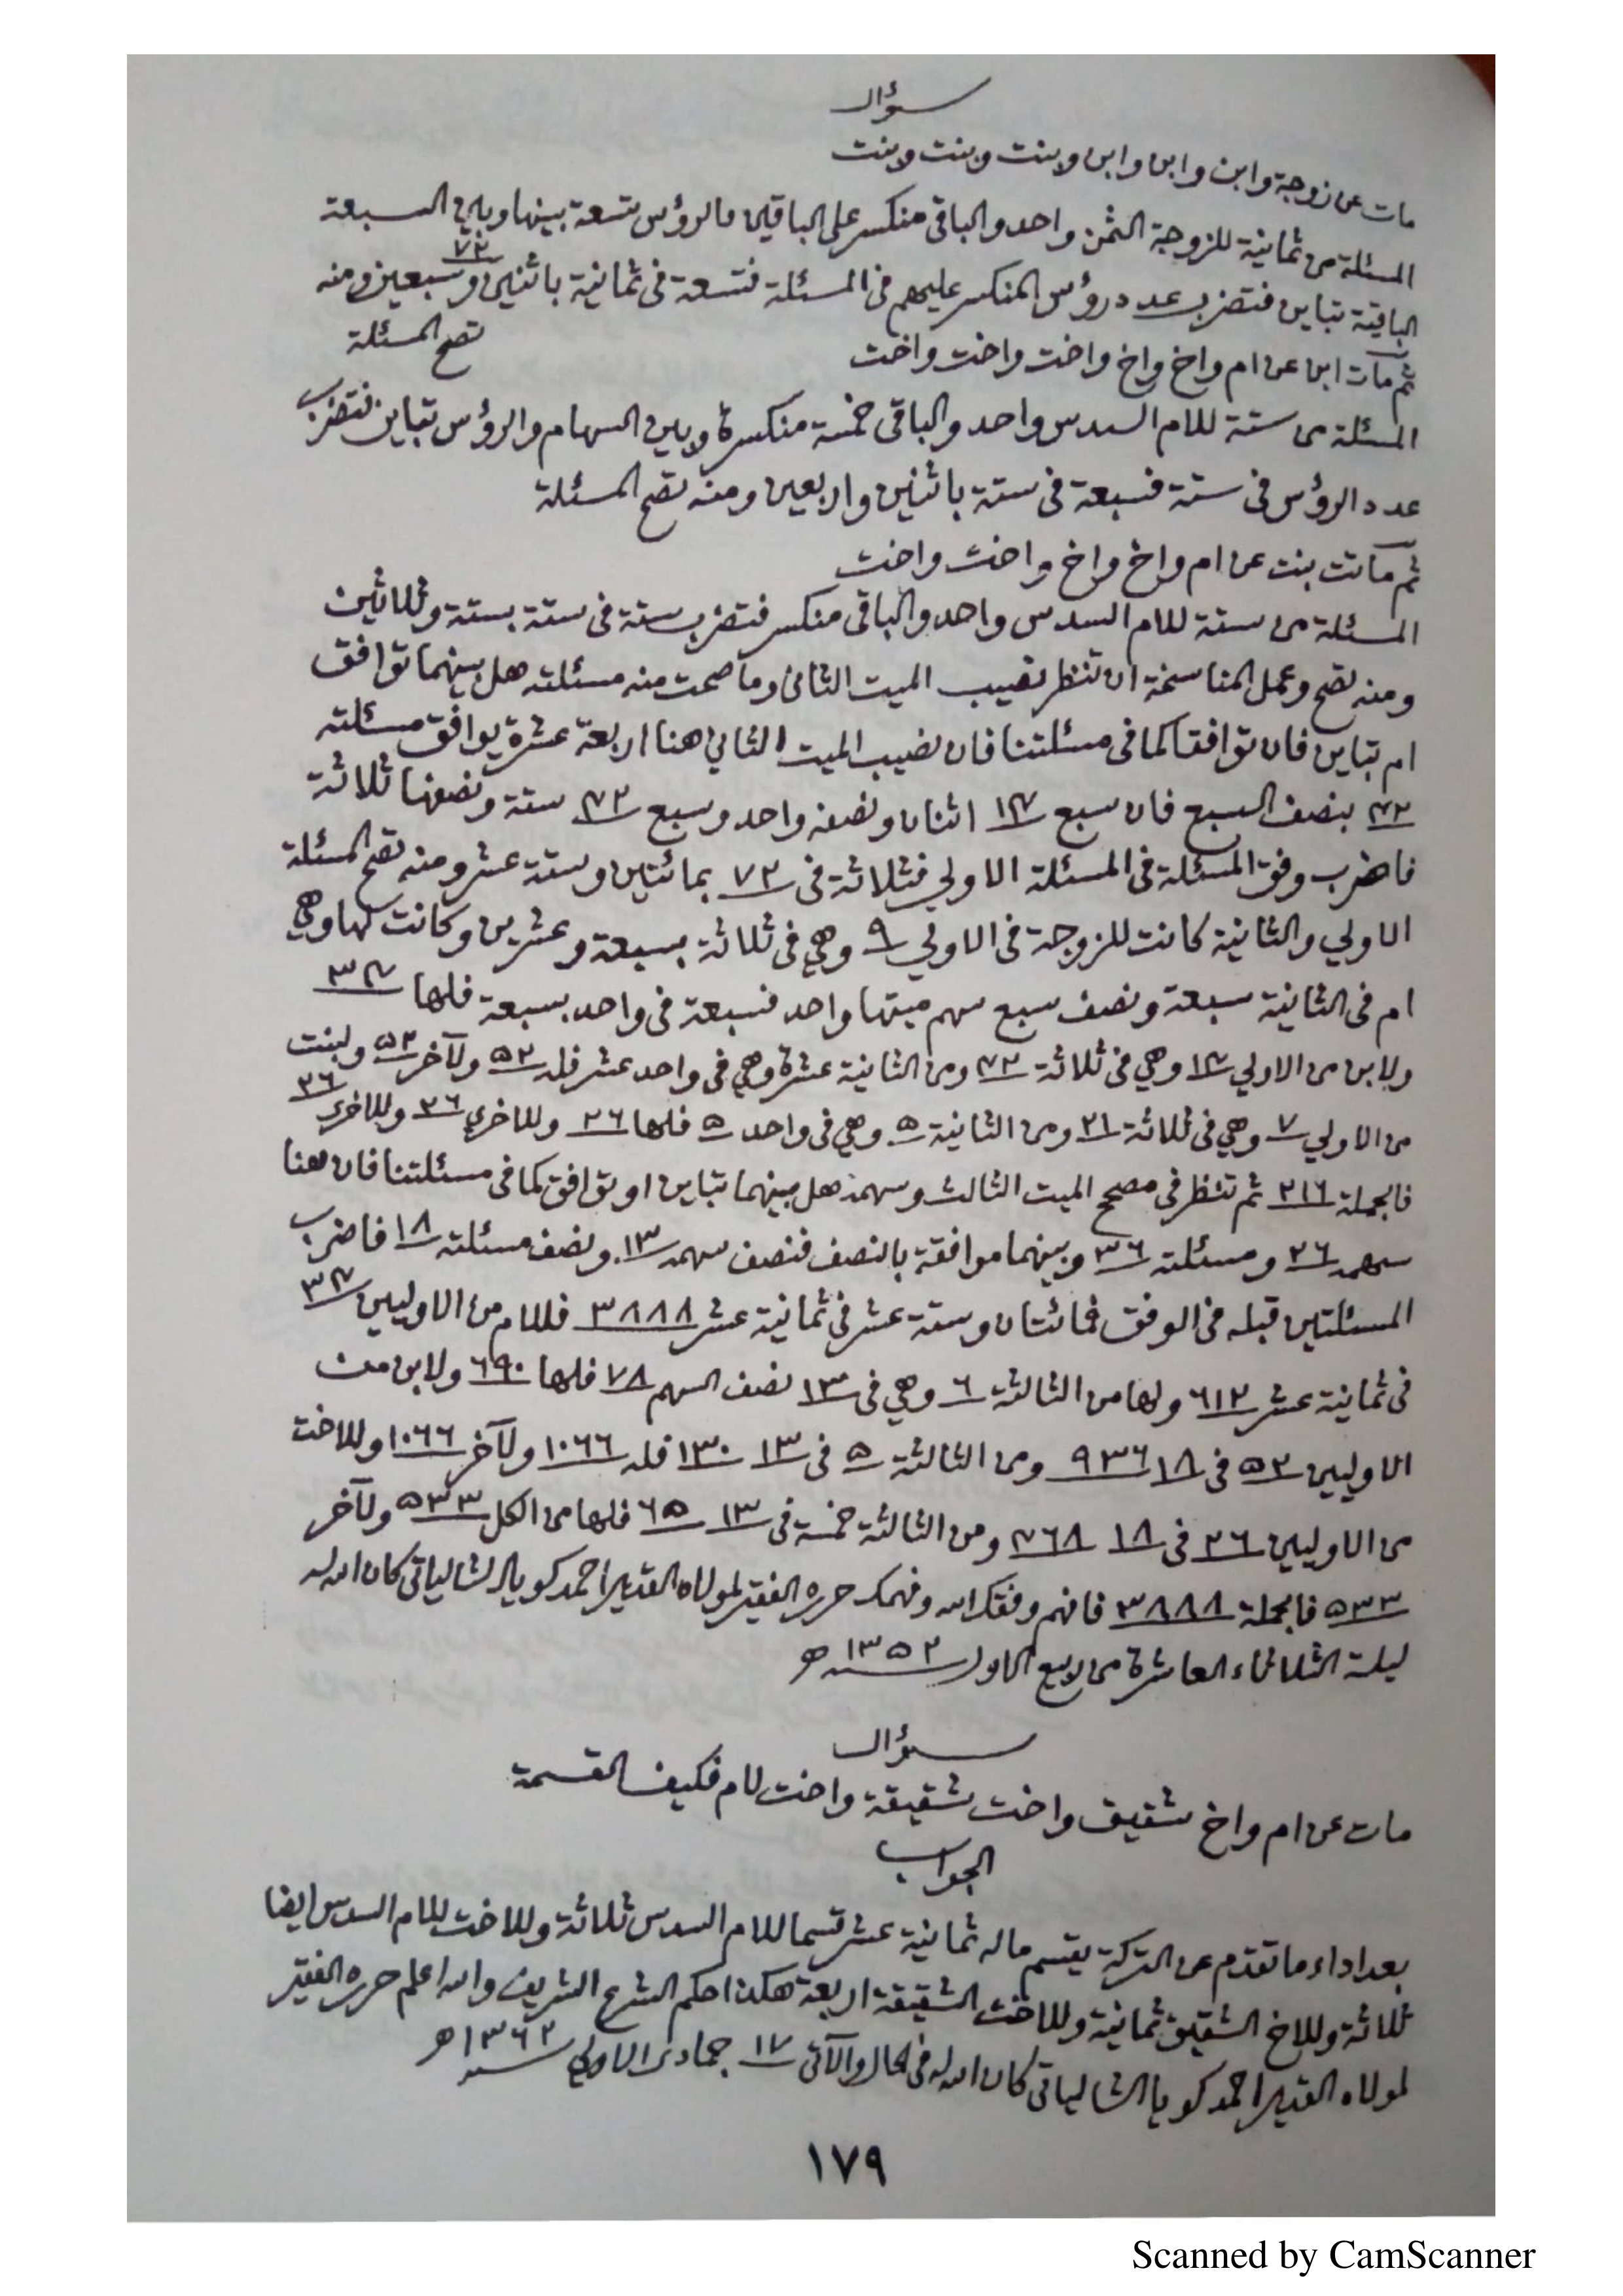 سؤال
مات عن زوجة وابن وابن وابن وبنت وبنت وبنت
المسئلة من ثمانية للزوجة الثمن واحد والباقي منكسر على الباقين فالرؤس تسعة بينها وبين السبعة
الباقية تباين فتضرب عدد رؤس المنكسر عليهم في المسئلة فتسعة في ثمانية باثنين وسبعين ٧٢ ومنه
تصح المسئلة
ثم مات ابن عن ام واخ واخ واخت واخت واخت
المسئلة من ستة للام السدس واحد والباقي خمسة منكسرة وبين السهام والرؤس تباين فتضرب
عدد الرؤس في ستة فسبعة في ستة باثنين واربعين ومنه تصح المسئلة
ثم ماتت بنت عن ام واخ واخ واخت واخت
المسئلة من ستة للام السدس واحد والباقي منكسر فتضرب ستة في ستة بستة وثلاثين
ومنه تصح وعمل المناسخة ان تنظر نصيب الميت الثاني وما صحت منه مسئلته هل بينهما توافق
ام تباين فان توافقا كما في مسئلتنا فان نصيب الميت الثاني هنا اربعة عشرة يوافق مسئلته
٤٢ بنصف السبع فان سبع ١٤ اثنان ونصفه واحد وسبع ٤٢ ستة ونصفها ثلاثة
فاضرب وفق المسئلة في المسئلة الاولي فثلاثة في ٧٢ بمائتين وستة عشر ومنه تصح المسئلة
الاولي والثانية كانت للزوجة في الاولي ٩ وهي في ثلاثة بسبعة وعشرين وكانت لها وهي
ام في الثانية سبعة ونصف سبع سهم ميتها واحد فسبعة في واحد بسبعة فلها ٣٤
ولابن من الاولي ١٤ وهي في ثلاثة ٤٢ ومن الثانية عشرة وهي في واحد عشر فله ٥٢ ولآخر ٥٢ ولبنت
من الاولي ٧ وهي في ثلاثة ٢١ ومن الثانية ٥ وهي في واحد ٥ فلها ٢٦ وللاخري ٢٦ وللاخري ٢٦
فالجملة ٢١٦ ثم تنظر في مصحح الميت الثالث وسهمه هل بينهما تباين او توافق كما في مسئلتنا فان هنا
سهمه ٢٦ ومسئلته ٣٦ وبينهما موافقة بالنصف فنصف سهمه ١٣ ونصف مسئلته ١٨ فاضرب
المسئلتين قبله في الوفق فمائتان وستة عشر في ثمانية عشر ٣٨٨٨ فللام من الاوليين ٣٤
في ثمانية عشر ٦١٢ ولها من الثالثة ٦ وهي في ١٣ نصف السهم ٧٨ فلها ٦٩٠ ولابن من
الاوليين ٥٢ في ١٨ ٩٣٦ ومن الثالثة في ١٣ ١٣٠ فله ١٠٦٦ ولآخر ١٠٦٦ وللاخت
من الاوليين ٢٦ في ١٨ ٤٦٨ ومن الثالثة خمسة في ١٣ ٦٥ فلها من الكل ٥٣٣ ولآخر
٥٣٣ فالجملة ٣٨٨٨ فافهم وفقك الله وفهمك حرره الفقير لمولاه القدير احمد كويا الشالياتي كان الله له
ليلة الثلاثاء العاشرة من ربيع الاول سنة ١٣٥٢ هـ
سؤال
مات عن ام واخ شقيق واخت شقيقة واخت لام فكيف القسمة
الجواب
بعد اداء ما تقدم عن التركة يقسم ماله ثمانية عشر قسما للام السدس ثلاثة وللاخت للام السدس ايضا
ثلاثة وللاخ الشقيق ثمانية وللاخت الشقيقة اربعة هكذا حكم الشرع الشريف والله اعلم حرره الفقير
لمولاه القدير احمد كويا الشالياتي كان الله له في الحال والآتي ١٧ جمادى الاولي سنة ١٣٦٢ هـ
١٧٩
Scanned by CamScanner